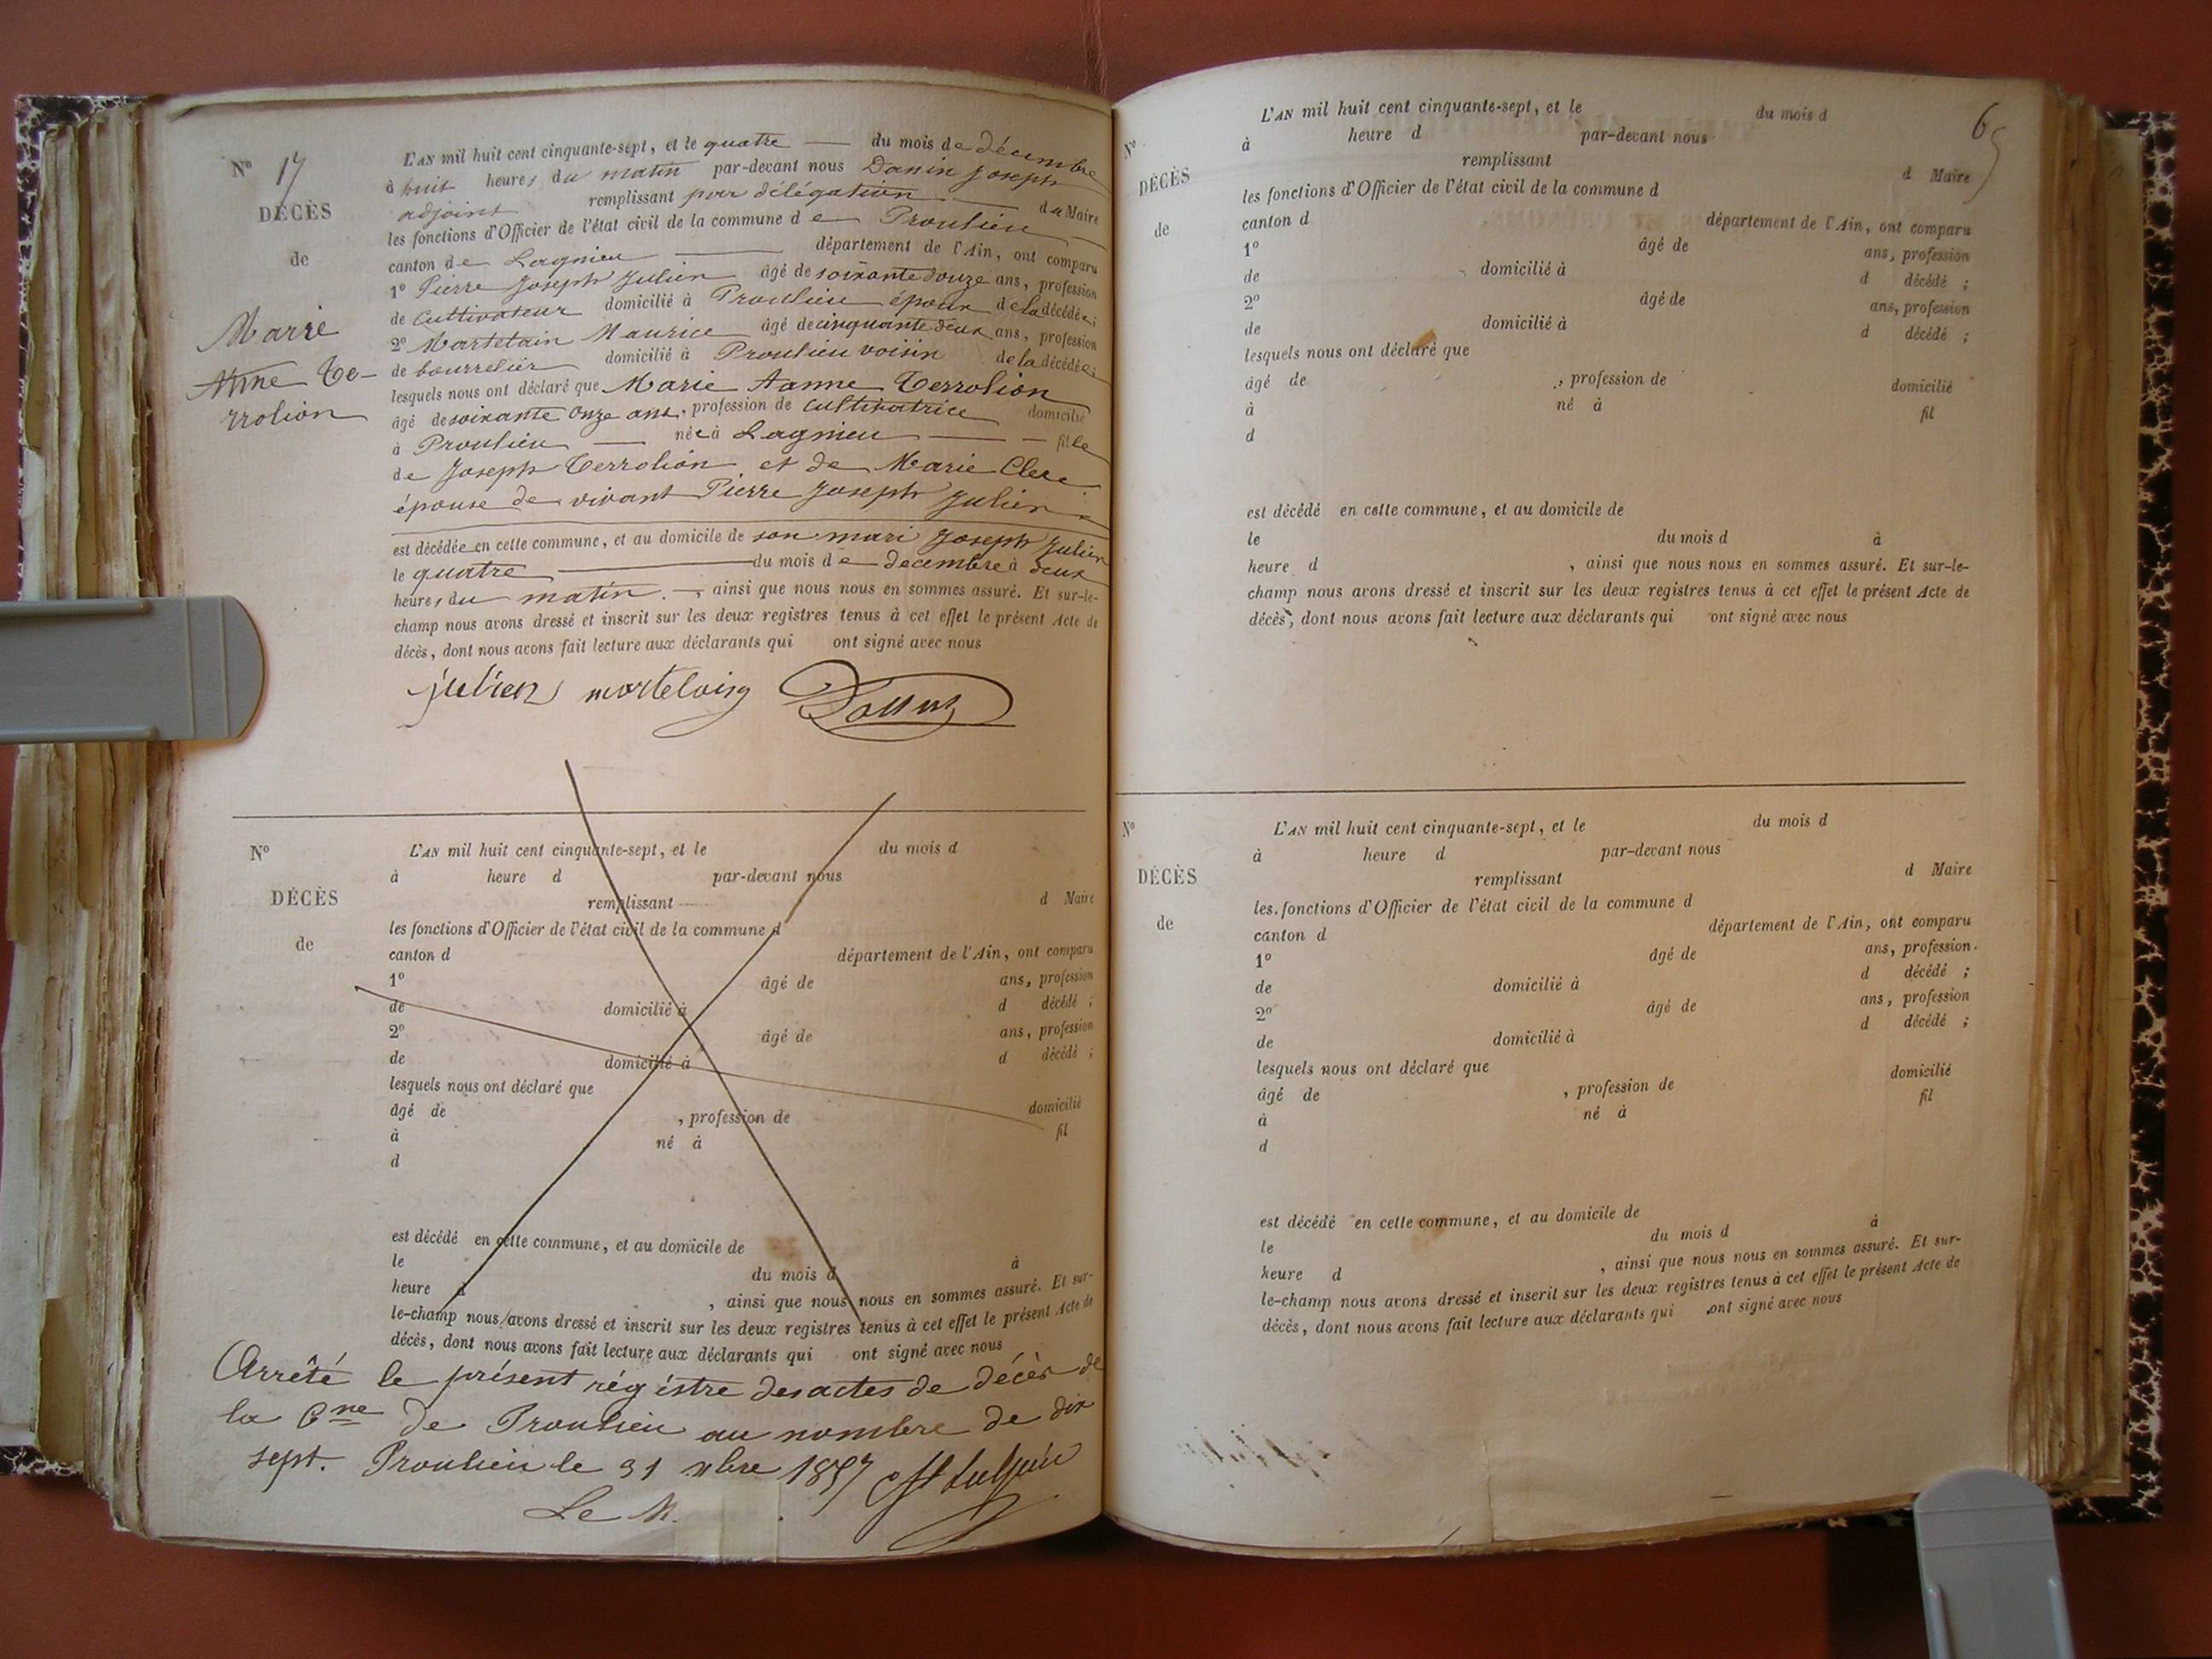 Nº 17
DÉCÈS
de
Marie
Anne Te-
rrolion
L'AN mil huit cent cinquante-sept, et le quatre — du mois de décembre
à huit heures du matin par-devant nous Danin Joseph
adjoint remplissant par délégation — du Maire
les fonctions d'Officier de l'état civil de la commune de Proulieu
canton de Lagnieu — département de l'Ain, ont comparu
1º Pierre Joseph Julien âgé de soixante douze ans, profession
de Cultivateur domicilié à Proulieu époux de la décédée;
2º Martelain Maurice âgé de cinquante deux ans, profession
de bourrelier domicilié à Proulieu voisin de la décédée;
lesquels nous ont déclaré que Marie Aanne Terrolion
âgé de soixante onze ans, profession de Cultivatrice domicilié
à Proulieu — née à Lagnieu — fille
de Joseph Terrolion et de Marie Clerc
épouse de vivant Pierre Joseph Julien
est décédée en cette commune, et au domicile de son mari Joseph Julien
le quatre — du mois de decembre à deux
heures du matin. —, ainsi que nous nous en sommes assuré. Et sur-le-
champ nous avons dressé et inscrit sur les deux registres tenus à cet effet le présent Acte de
décès, dont nous avons fait lecture aux déclarants qui ont signé avec nous
julien
Nº
DÉCÈS
de
L'AN mil huit cent cinquante-sept, et le du mois d
à heure d par-devant nous
remplissant d Maire
les fonctions d'Officier de l'état civil de la commune d
canton d département de l'Ain, ont comparu
1º âgé de ans, profession
de domicilié à d décédé ;
2º âgé de ans, profession
de domicilié à d décédé ;
lesquels nous ont déclaré que
âgé de , profession de domicilié
à né à fil
d
est décédé en cette commune, et au domicile de
le du mois d à
heure d , ainsi que nous nous en sommes assuré. Et sur-
le-champ nous avons dressé et inscrit sur les deux registres tenus à cet effet le présent Acte de
décès, dont nous avons fait lecture aux déclarants qui ont signé avec nous
Arrêté le présent régistre des actes de décès de
la Cne de Proulieu au nombre de dix
sept. Proulieu le 31 xbre 1857
Le M.
65
Nº
DÉCÈS
de
L'AN mil huit cent cinquante-sept, et le du mois d
à heure d par-devant nous
remplissant d Maire
les fonctions d'Officier de l'état civil de la commune d
canton d département de l'Ain, ont comparu
1º âgé de ans, profession
de domicilié à d décédé ;
2º âgé de ans, profession
de domicilié à d décédé ;
lesquels nous ont déclaré que
âgé de , profession de domicilié
à né à fil
d
est décédé en cette commune, et au domicile de
le du mois d à
heure d , ainsi que nous nous en sommes assuré. Et sur-le-
champ nous avons dressé et inscrit sur les deux registres tenus à cet effet le présent Acte de
décès, dont nous avons fait lecture aux déclarants qui ont signé avec nous
Nº
DÉCÈS
de
L'AN mil huit cent cinquante-sept, et le du mois d
à heure d par-devant nous
remplissant d Maire
les fonctions d'Officier de l'état civil de la commune d
canton d département de l'Ain, ont comparu
1º âgé de ans, profession
de domicilié à d décédé ;
2º âgé de ans, profession
de domicilié à d décédé ;
lesquels nous ont déclaré que
âgé de , profession de domicilié
à né à fil
d
est décédé en cette commune, et au domicile de
le du mois d à
heure d , ainsi que nous nous en sommes assuré. Et sur-
le-champ nous avons dressé et inscrit sur les deux registres tenus à cet effet le présent Acte de
décès, dont nous avons fait lecture aux déclarants qui ont signé avec nous